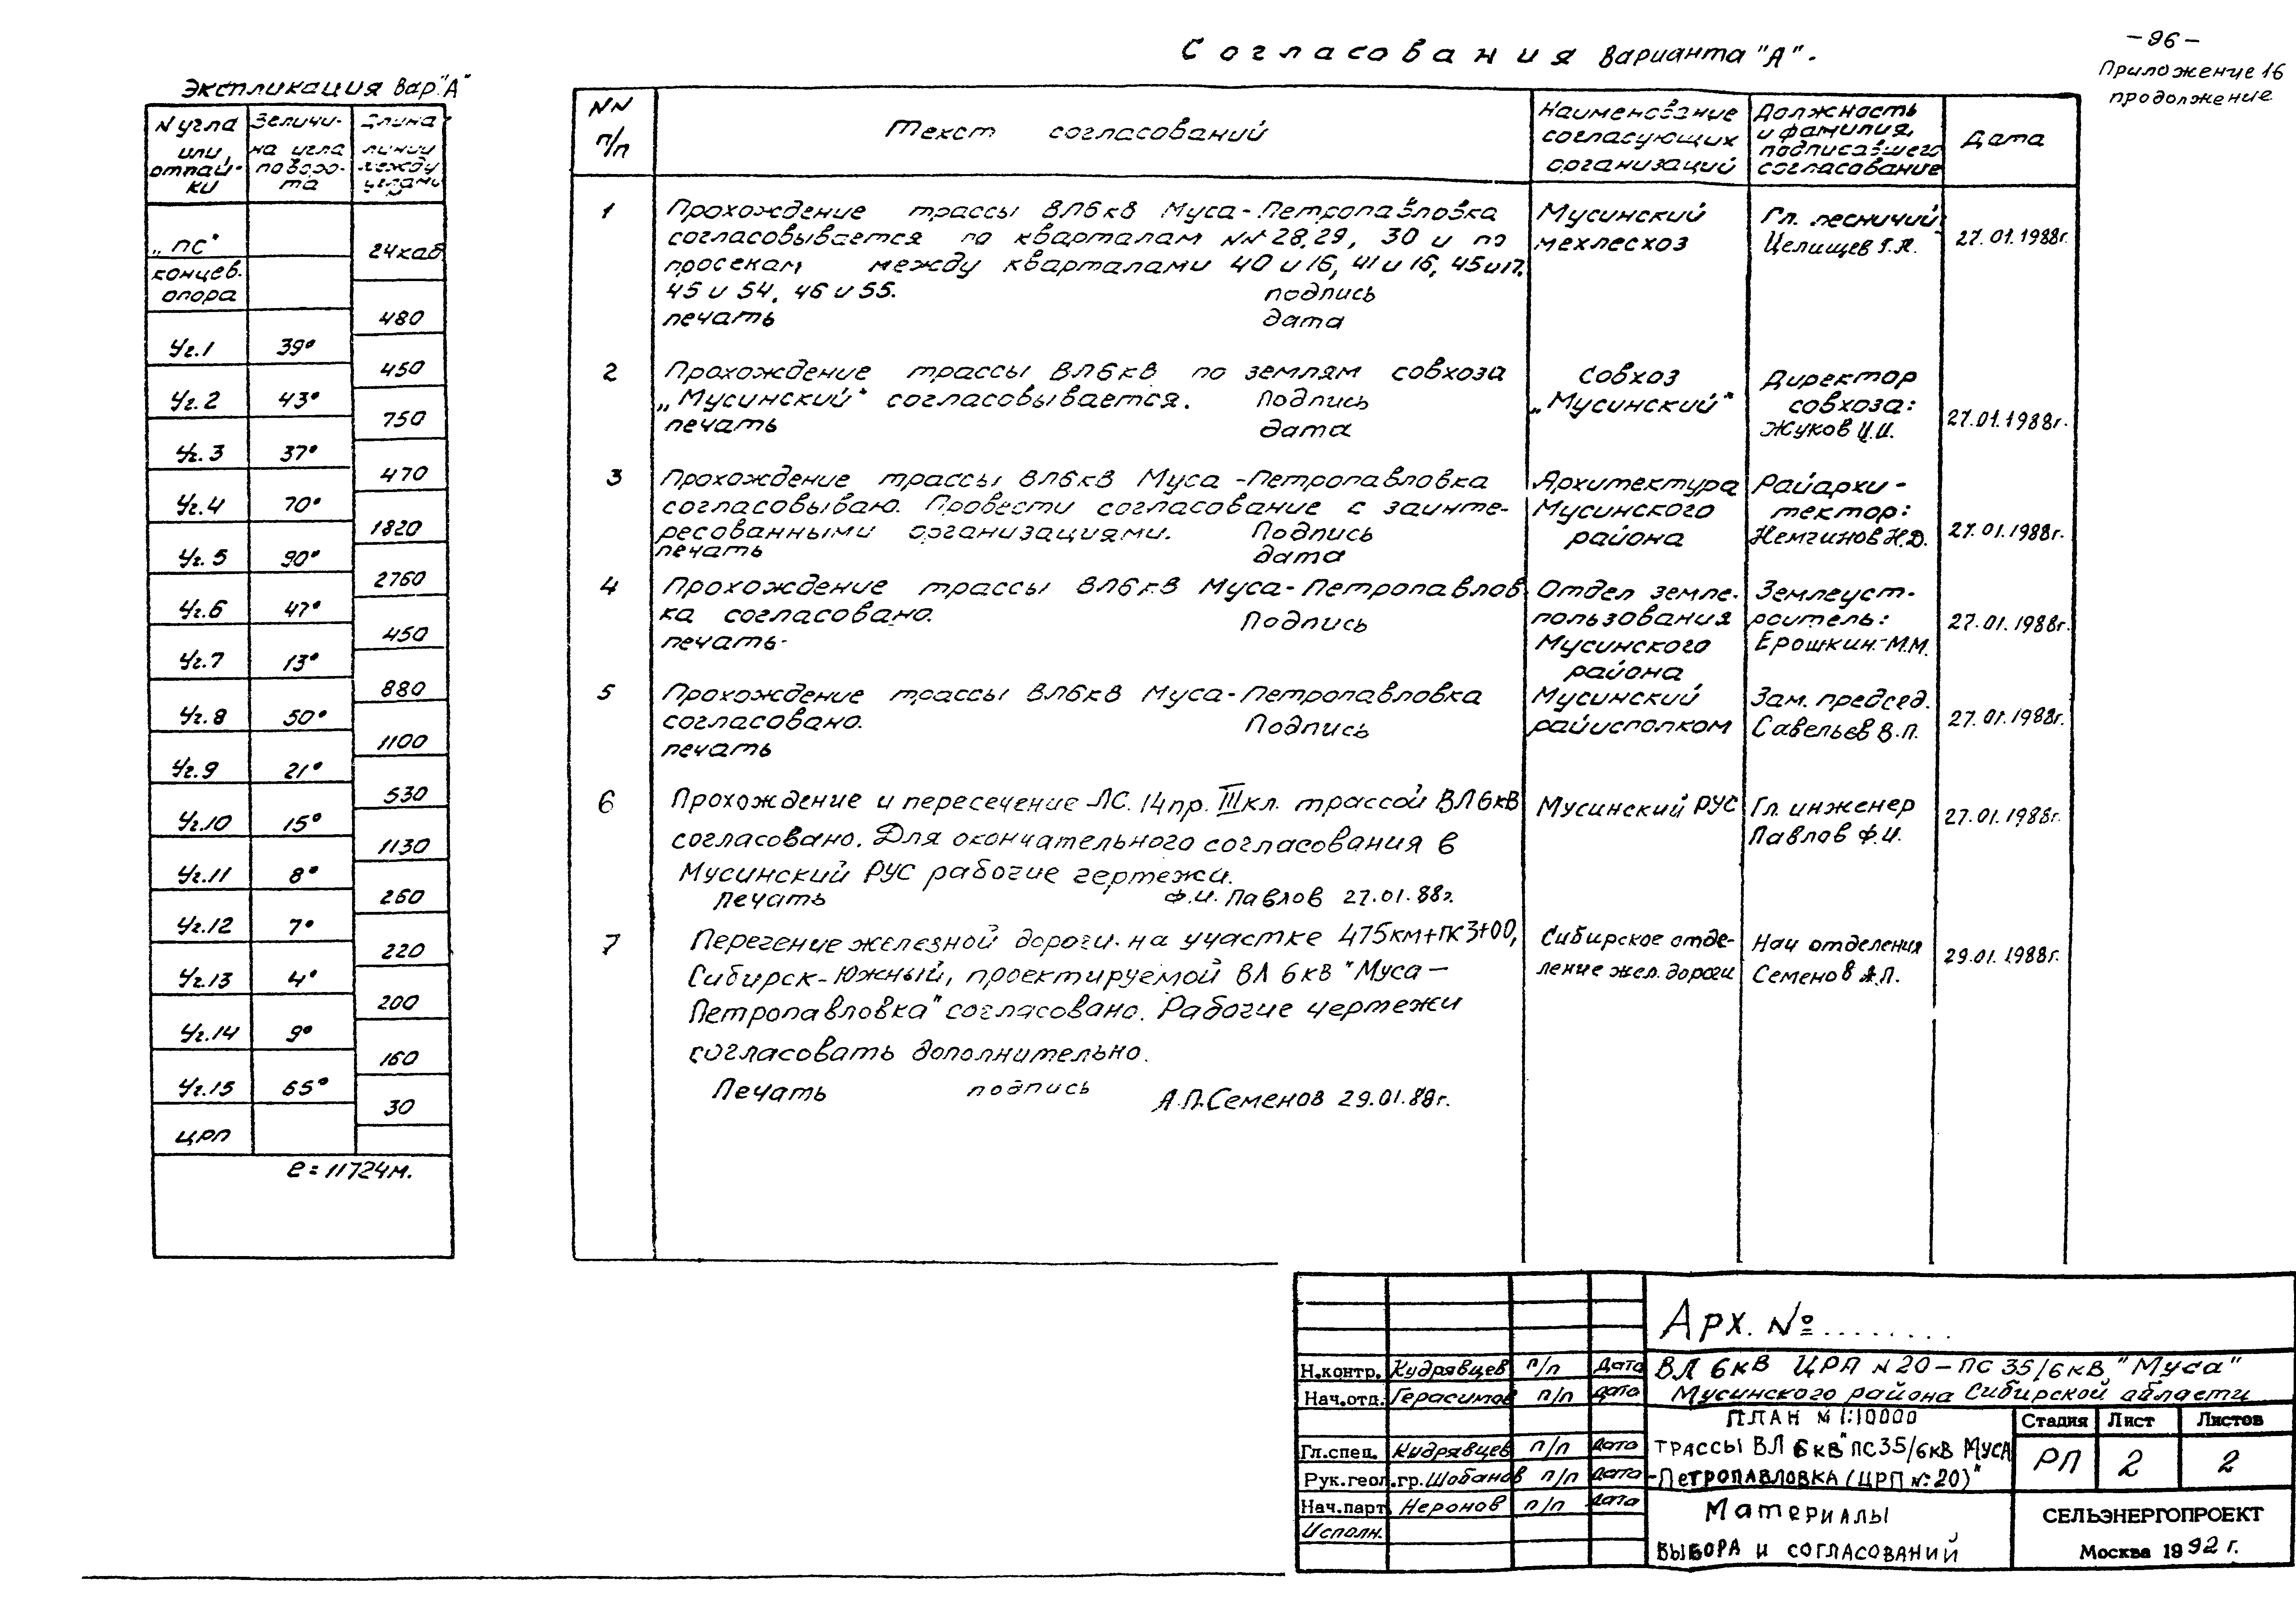 – 96 –
Приложение 16
продолжение
Согласования варианта "А".
Экспликация вар. "А"
N угла или отпай-ки
Величи-на угла поворо-та
Длина линии между углами
„ПС"
24каб
концев.
опора
480
Уг.1 39°
450
Уг.2 43°
750
Уг.3 37°
470
Уг.4 70°
1820
Уг.5 90°
2760
Уг.6 47°
450
Уг.7 13°
880
Уг.8 50°
1100
Уг.9 21°
530
Уг.10 15°
1130
Уг.11 8°
260
Уг.12 7°
220
Уг.13 4°
200
Уг.14 9°
160
Уг.15 65°
30
ЦРП
ℓ = 11724м.
NN п/п
Текст согласований
Наименование согласующих организаций
Должность и фамилия, подписавшего согласование
Дата
1
Прохождение трассы ВЛ6кВ Муса-Петропавловка
согласовывается по кварталам NN 28,29, 30 и по
просекам между кварталами 40 и 16, 41 и 16, 45 и 17,
45 и 54, 46 и 55. подпись
печать дата
Мусинский
мехлесхоз
Гл. лесничий:
Целищев Г.Я.
27.01.1988г.
2
Прохождение трассы ВЛ6кВ по землям совхоза
„Мусинский" согласовывается. Подпись
печать дата
Совхоз
„Мусинский"
Директор
совхоза:
Жуков Ц.И.
27.01.1988г.
3
Прохождение трассы ВЛ6кВ Муса-Петропавловка
согласовываю. Провести согласование с заинте-
ресованными организациями. Подпись
печать дата
Архитектура
Мусинского
района
Райархи-
тектор:
Немчинов Н.Д.
27.01.1988г.
4
Прохождение трассы ВЛ6кВ Муса-Петропавлов
ка согласовано. Подпись
печать-
Отдел земле-
пользования
Мусинского
района
Землеуст-
роитель:
Ерошкин М.М.
27.01.1988г.
5
Прохождение трассы ВЛ6кВ Муса-Петропавловка
согласовано. Подпись
печать
Мусинский
райисполком
Зам. председ.
Савельев В.П.
27.01.1988г.
6
Прохождение и пересечение ЛС. 14пр. III кл. трассой ВЛ 6кВ
согласовано. Для окончательного согласования в
Мусинский РУС рабочие чертежи.
Печать Ф.И. Павлов 27.01.88г.
Мусинский РУС
Гл. инженер
Павлов Ф.И.
27.01.1988г.
7
Перечение железной дороги на участке 475км+ПК3+00,
Сибирск-Южный, проектируемой ВЛ 6кВ "Муса –
Петропавловка" согласовано. Рабочие чертежи
согласовать дополнительно.
Печать подпись А.П.Семенов 29.01.88г.
Сибирское отде-
ление жел. дороги
Нач отделения
Семенов А.П.
29.01.1988г.
Арх. №.........
Н.контр. Кудрявцев п/п Дата
Нач.отд. Герасимов п/п Дата
Гл.спец. Кудрявцев п/п Дата
Рук.геол.гр. Шобанов п/п Дата
Нач.парт. Неронов п/п Дата
Исполн.
ВЛ 6кВ ЦРП N 20 – ПС 35/6кВ "Муса"
Мусинского района Сибирской области
ПЛАН М 1:10000
трассы ВЛ 6кВ "ПС35/6кВ Муса
-Петропавловка (ЦРП №20)"
Стадия Лист Листов
РП 2 2
Материалы
выбора и согласований
СЕЛЬЭНЕРГОПРОЕКТ
Москва 1992 г.